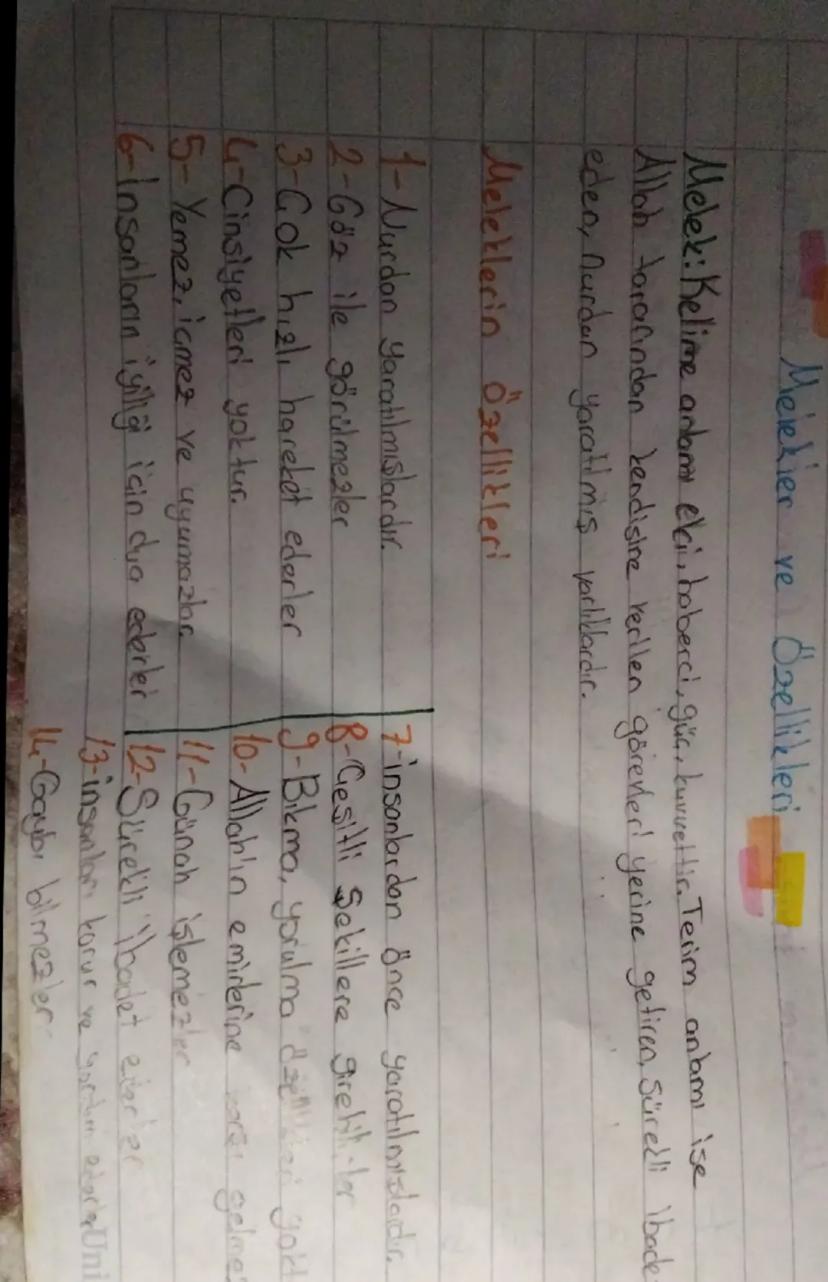 Melekler ve Özellikleri
Melek: Kelime anlamı elçi, haberci, güç, kuvvettir. Terim anlamı ise
Allah tarafından kendisine verilen görevleri yerine getiren, sürekli ibade
eden, nurdan yaratılmış varlıklardır.
Meleklerin Özellikleri
1-Nurdan yaratılmışlardır.
2-Göz ile görülmezler
3-Çok hızlı hareket ederler
4-Cinsiyetleri yoktur.
5-Yemez, içmez ve uyumazlar.
6-İnsanların iyiliği için dua ederler
7-insanlardan önce yaratılmışlardır.
8-Çeşitli şekillere girebilirler
9-Bıkma, yorulma özellikleri yokt
10-Allah'ın emirlerine karşı gelmez
11-Günah işlemezler
12-Sürekli ibadet ederler
13-insanları korur ve yardım ederler
14-Gaybı bilmezler